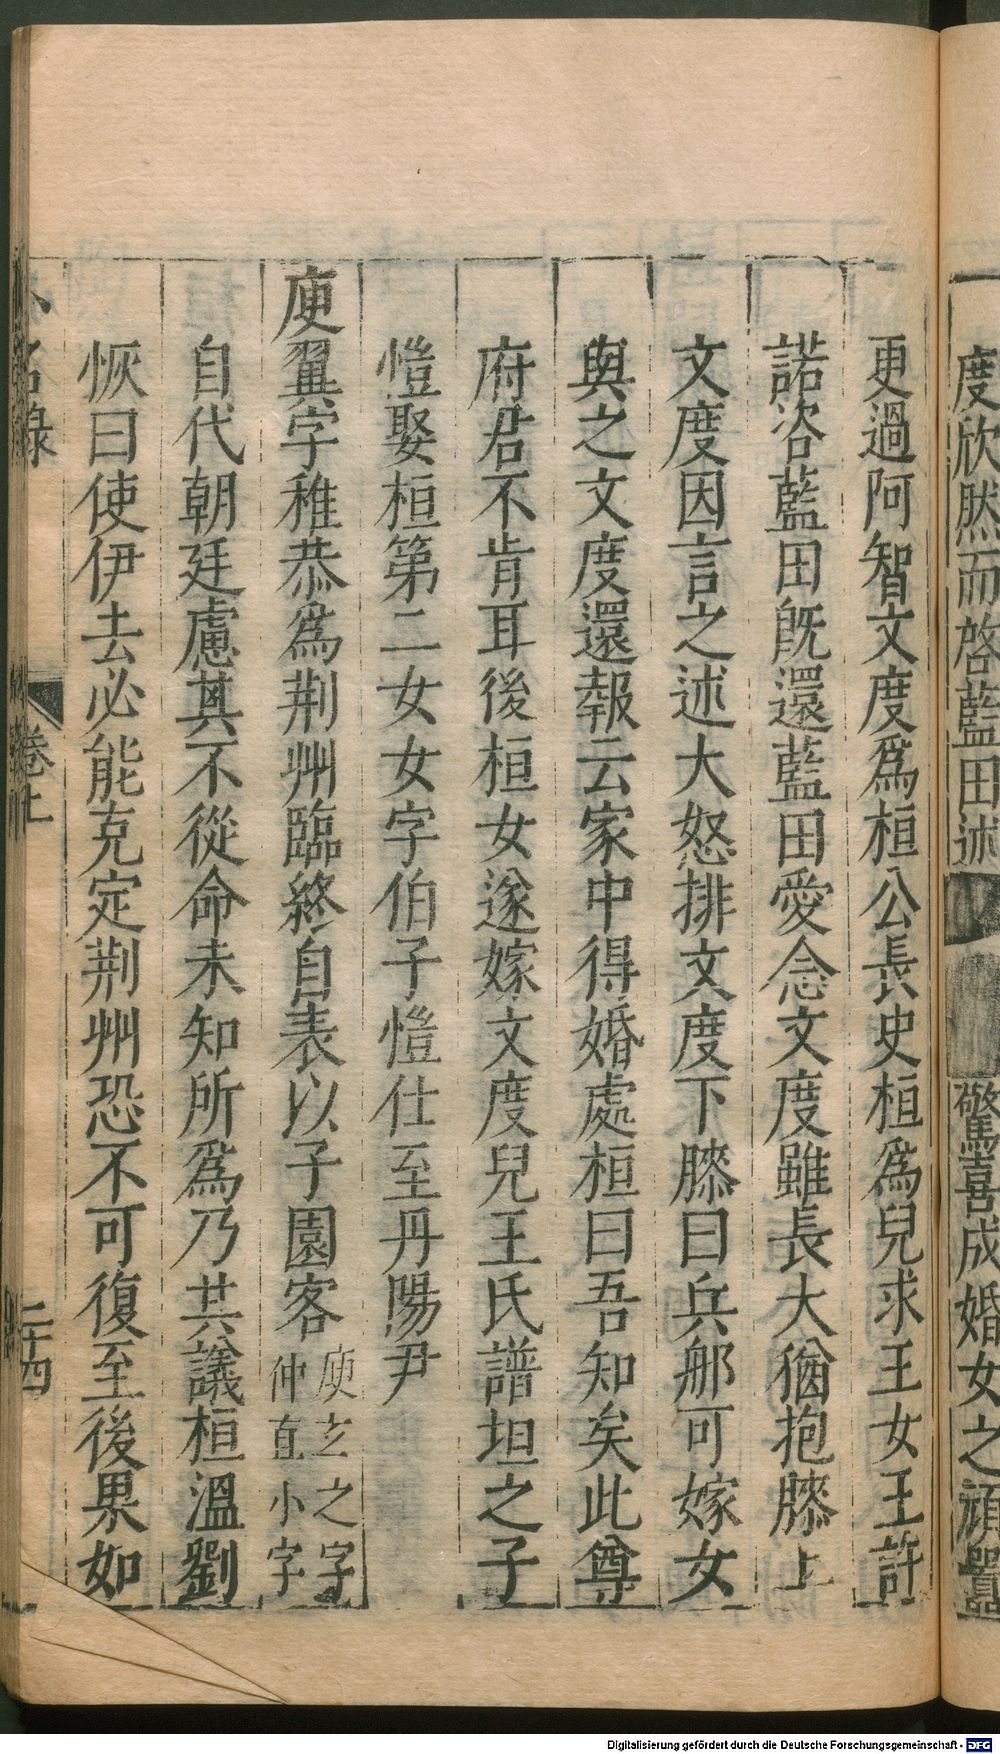 度欣然而啓藍田述
驚喜成婚女之頑嚚
更過阿智文度爲桓公長史桓爲兒求王女王許
諾咨藍田旣還藍田愛念文度雖長大猶抱膝上
文度因言之述大怒排文度下膝曰兵郍可嫁女
與之文度還報云家中得婚處桓曰吾知矣此尊
府君不肯耳後桓女遂嫁文度兒王氏譜坦之子
愷娶桓第二女女字伯子愷仕至丹陽尹
庾翼字稚恭爲荆州臨終自表以子園客庾玄之字
仲直小字
自代朝廷慮其不從命未知所爲乃共議桓溫劉
恢曰使伊去必能克定荆州恐不可復至後果如
小名錄
卷上
二十四
Digitalisierung gefördert durch die Deutsche Forschungsgemeinschaft - DFG